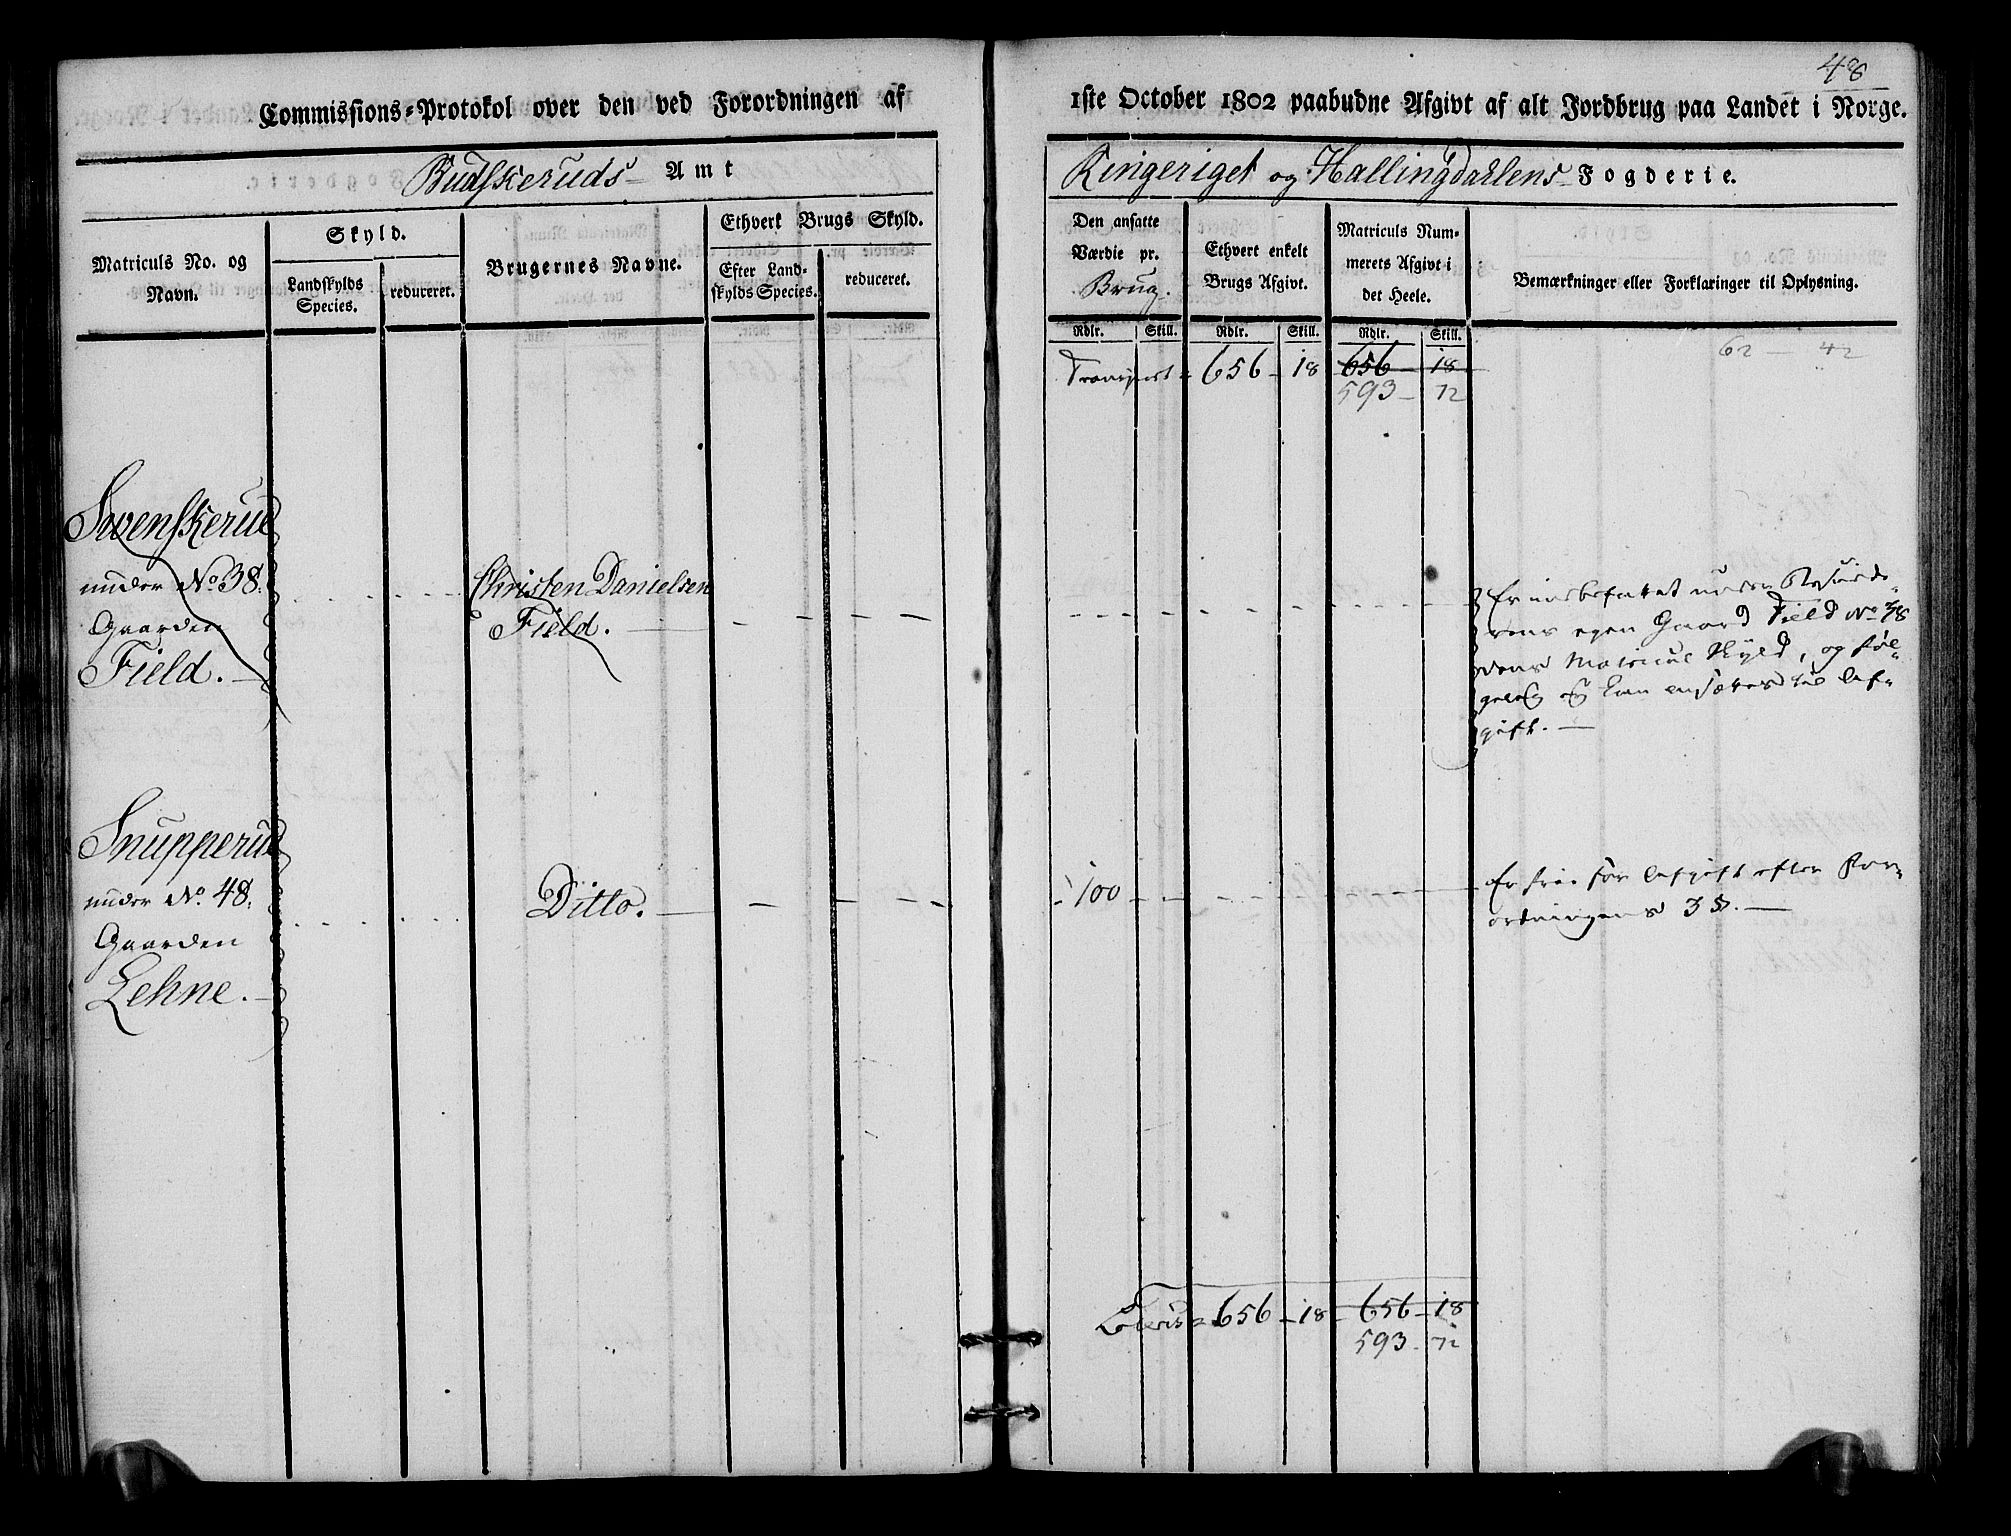 48
Commissions-Protokol over den ved Forordningen af 1ste October 1802 paabudne Afgivt af alt Jordbrug paa Landet i Norge.
Budskeruds Amt
Ringeriget og Hallingdahlens Fogderie.
Matriculs No. og Navn.
Skyld.
Landskylds Species.
reduceret.
Brugernes Navne.
Ethvert Brugs Skyld.
Efter Landskylds Species.
reduceret.
Den ansatte Værdie pr. Brug.
Ethvert enkelt Brugs Afgivt.
Matriculs Nummerets Afgivt i det Heele.
Bemærkninger eller Forklaringer til Oplysning.
Rdlr. Skill. Rdlr. Skill. Rdlr. Skill.
62 - 42
Transport = 656 - 18 656 - 18
593 - 72
Swenskerud
under No 38.
Gaarden
Field.
Christen Danielsen
Field.
Er indbefattet under
egen Gaard Field No 38
Matricul Skyld, og føl-
gelig ej kan ansættes til Af-
gift.
Snupperud
under No. 48.
Gaarden
Lehne.
Ditto.
100
Er frie for Afgift efter For-
ordningens 3 §.
Lateris = 656 - 18 - 656 - 18
593 - 72